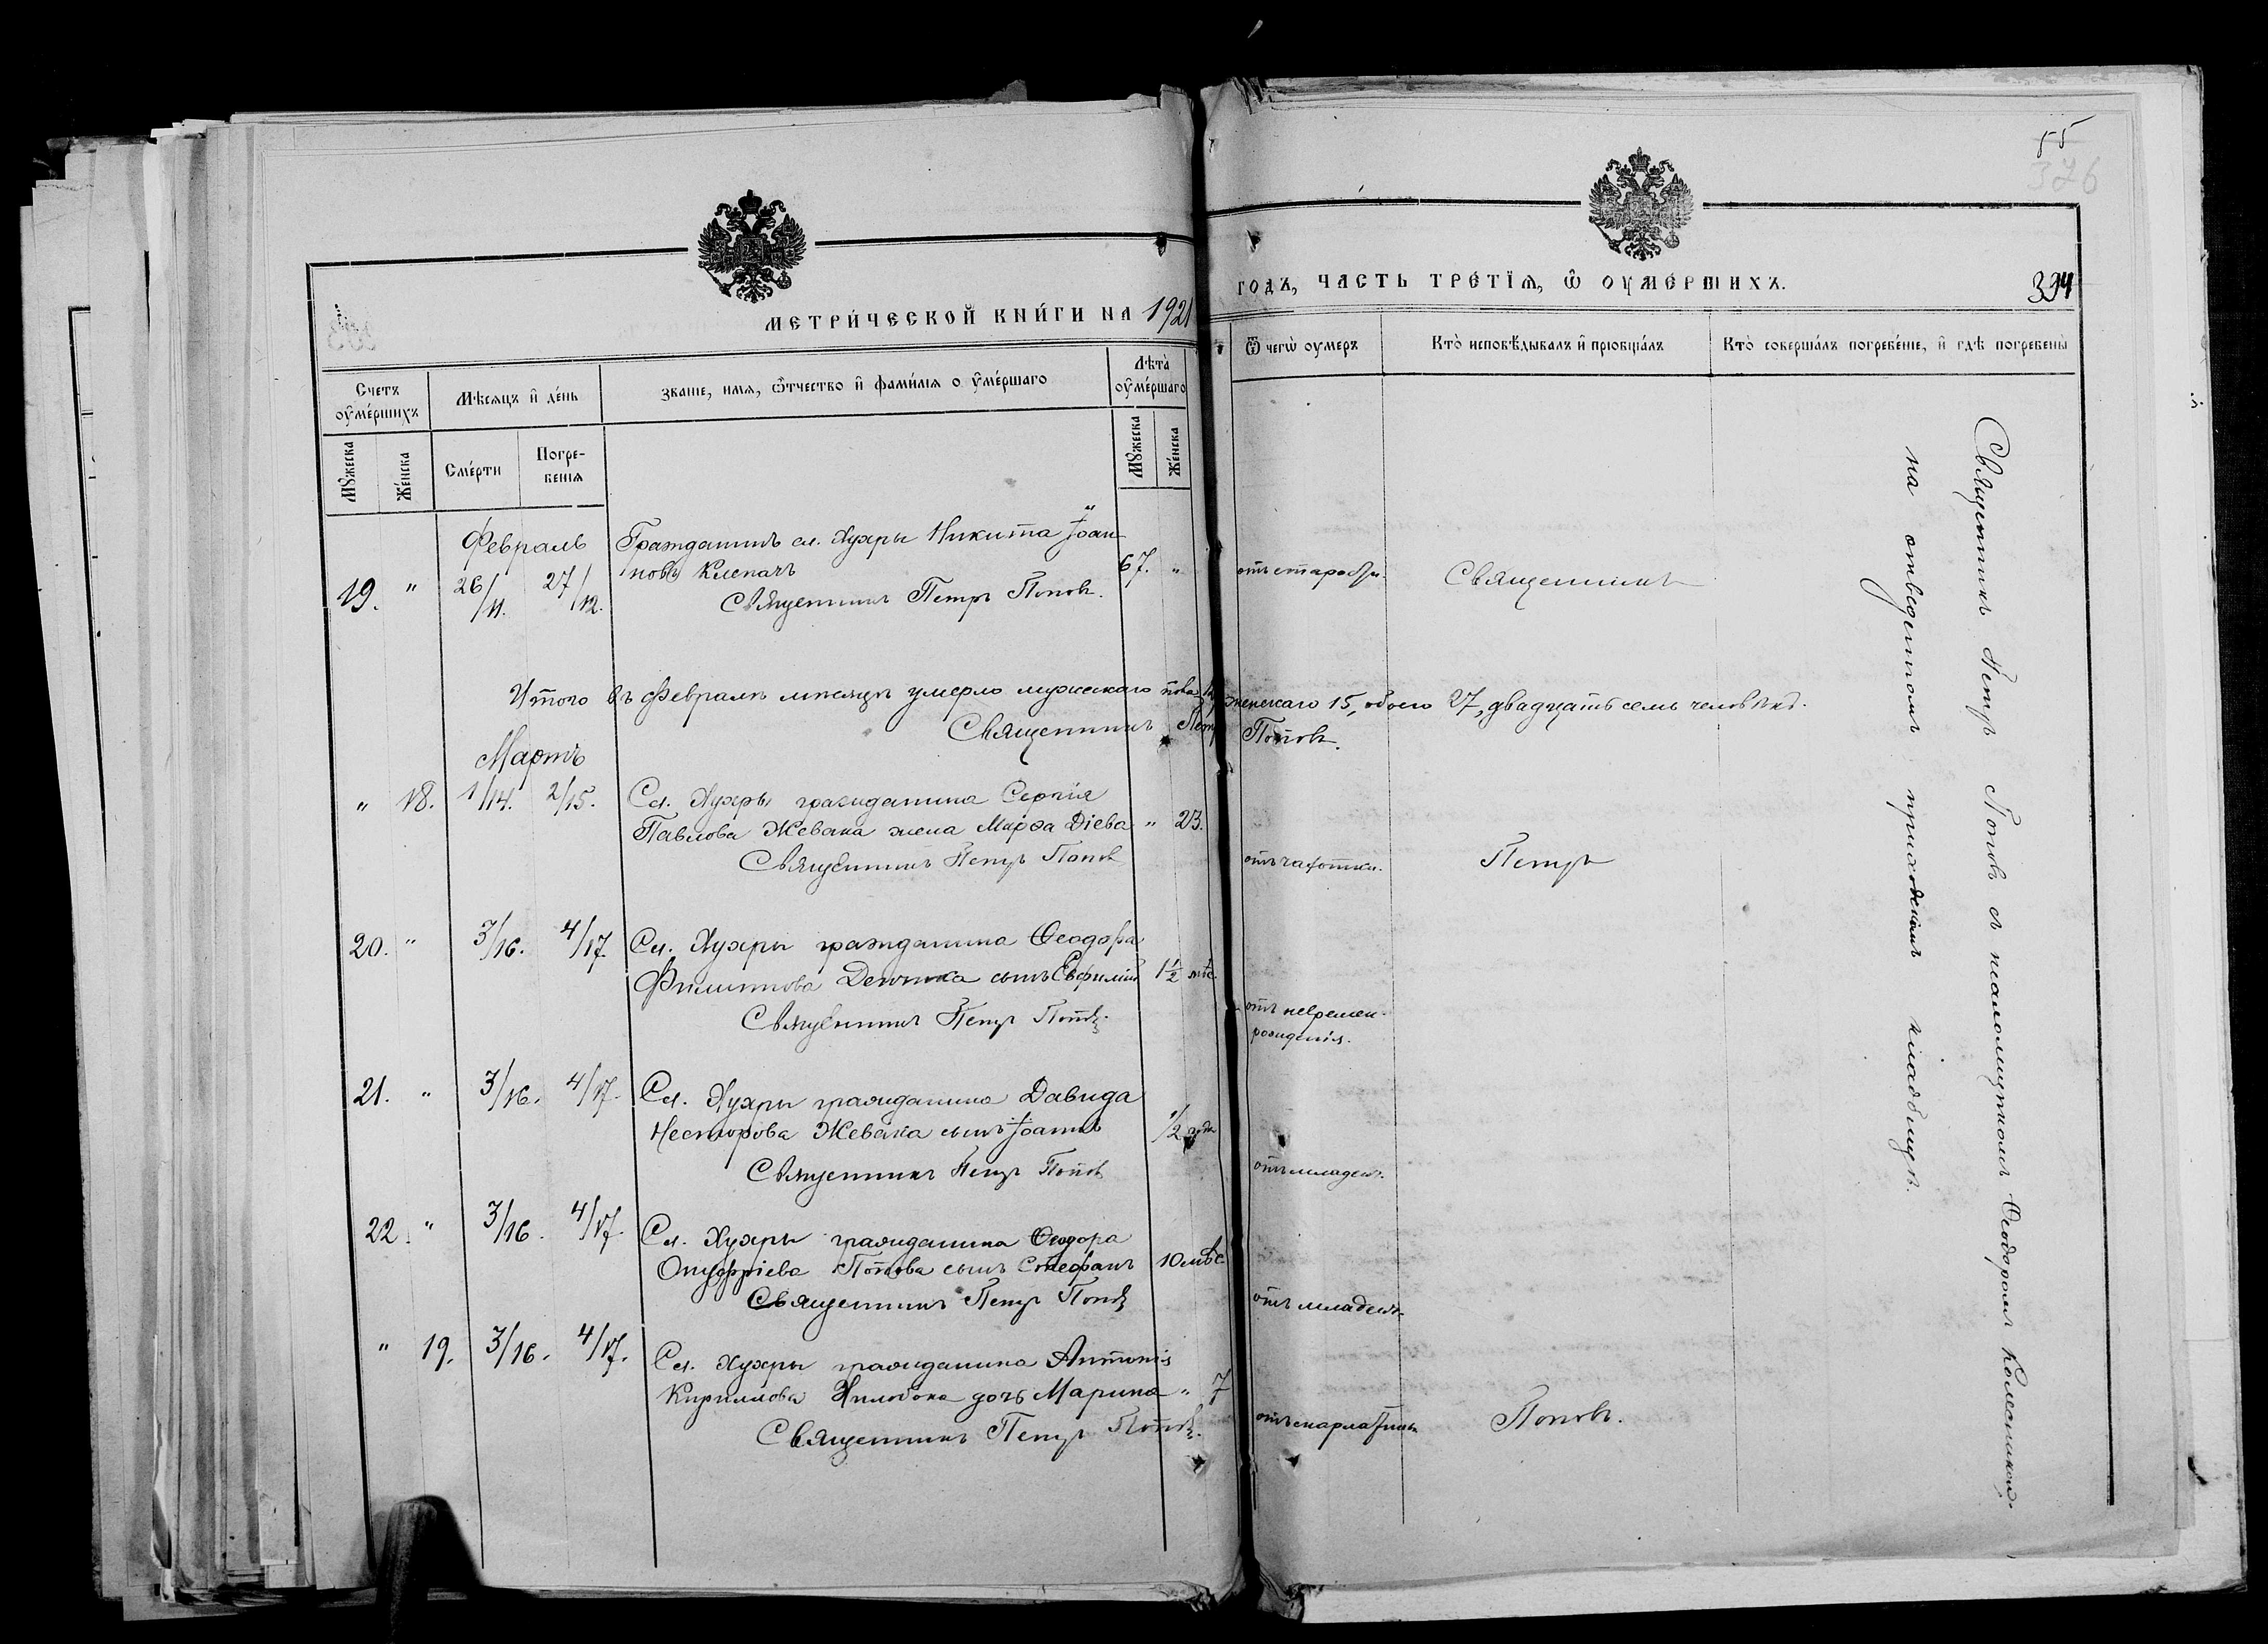 МЕТРИЧЕСКОЙ КНИГИ НА 1921
Счетъ оумершихъ
Мѣсяцъ и день
званіе, имя, ѿтчество и фамилія оумершаго
Лѣта оумершаго
Мужеска
Женска
Смерти
Погребенія
Мужеска
Женска
Февраль
19. " 26/11. 27/12.
Гражданинъ сл. Хухры Никита Іоан
новъ Клепачъ 67. "
Священникъ Петръ Поповъ.
Итого въ февралѣ мѣсяцѣ умерло мужескаго пола 12, женскаго 15, обоего 27, двадцать семь человѣкъ.
Священникъ Петръ Поповъ.
Мартъ
" 18. 1/14. 2/15.
Сл. Хухры гражданина Сергія
Павлова Жевака жена Марѳа Діева " 23.
Священникъ Петръ Поповъ
20. " 3/16. 4/17.
Сл. Хухры гражданина Ѳеодора
Филиппова сынъ Евфимій 1½ мѣс.
Священникъ Петръ Поповъ.
21. " 3/16. 4/17.
Сл. Хухры гражданина Давида
Несторова Жевака сынъ Іоаннъ 1/2 года
Священникъ Петръ Поповъ
22. " 3/16. 4/17.
Сл. Хухры гражданина Ѳеодора
Онуфріева Попова сынъ Стефанъ 10 мѣс
Священникъ Петръ Поповъ
" 19. 3/16. 4/17.
Сл. Хухры гражданина Антонія
Кириллова дочь Марина " 7
Священникъ Петръ Поповъ.
55
376
ГОДЪ, ЧАСТЬ ТРЕТІЯ, Ѡ ОУМЕРШИХЪ.
394
Ѿ чегѡ оумеръ
Кто исповѣдывалъ и пріобщалъ
Кто совершалъ погребеніе, и гдѣ погребены
отъ старости.
отъ чахотки.
отъ невремен.
рожденія.
отъ младен.
отъ младен.
отъ скарлатины
Священникъ
Петръ
Поповъ.
Священникъ Петръ Поповъ съ псаломщикомъ Ѳеодоромъ
на отведенномъ приходскимъ кладбищѣ.